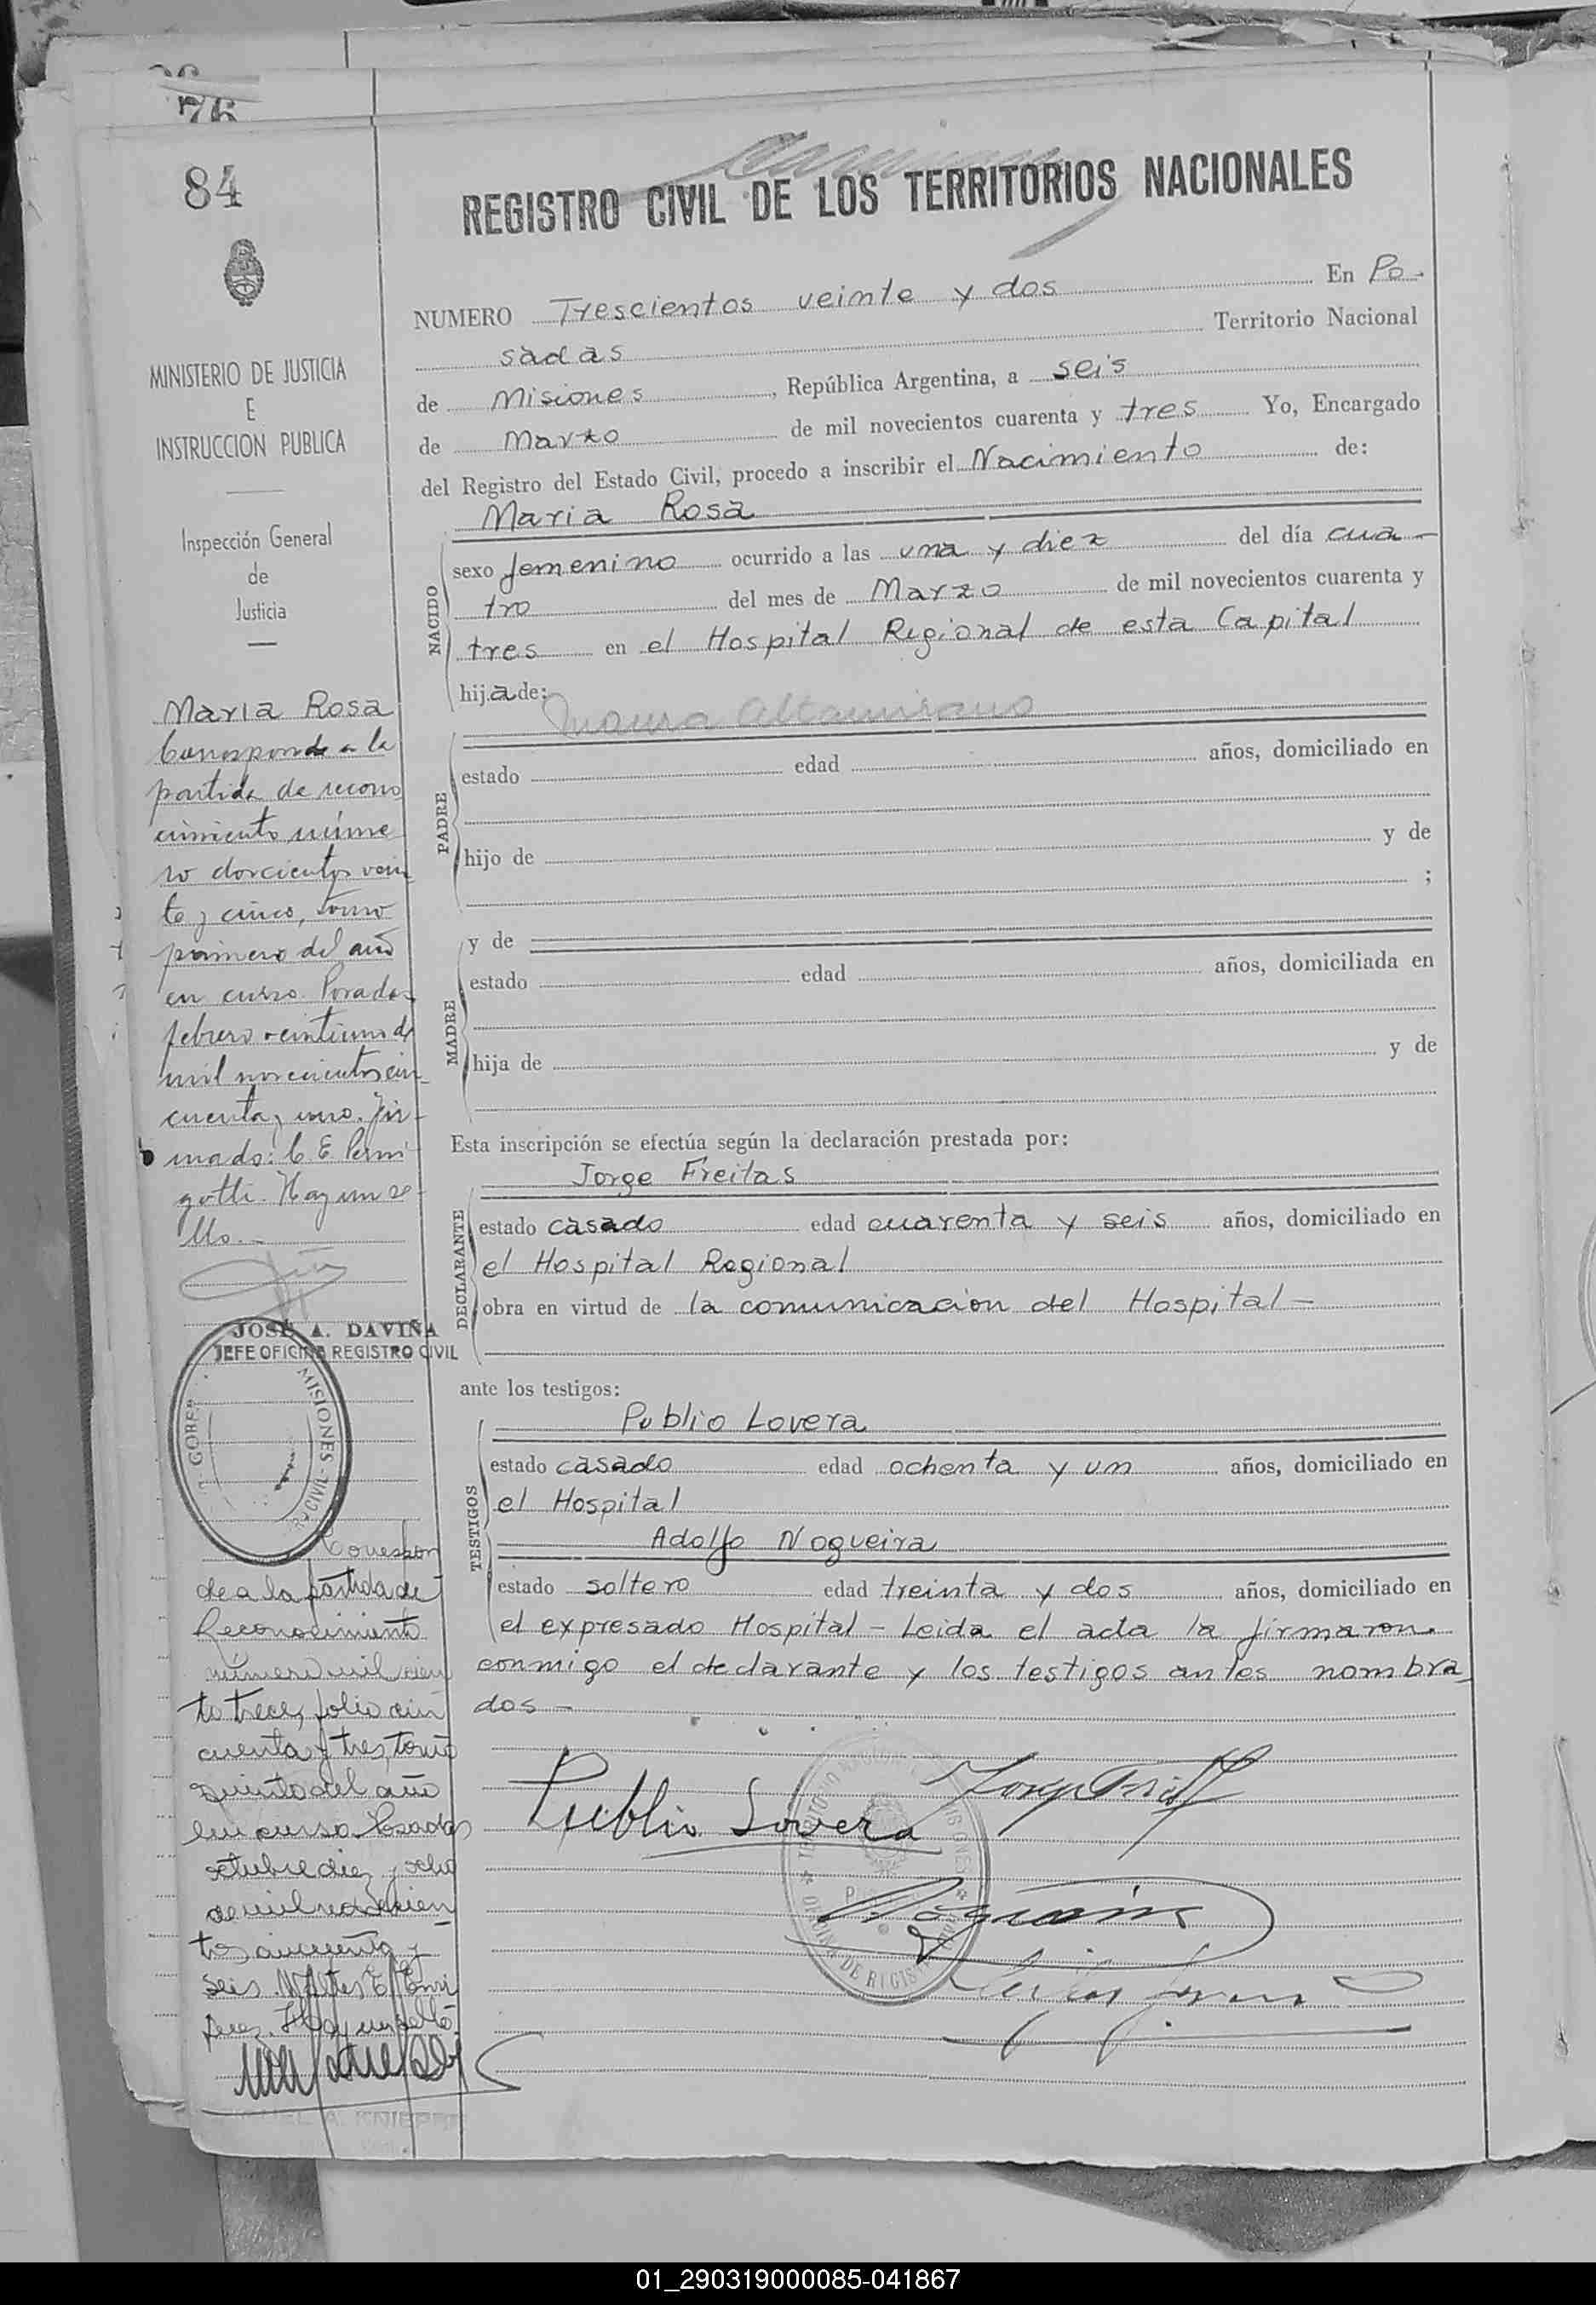 76
84
MINISTERIO DE JUSTICIA
E
INSTRUCCION PUBLICA
Inspección General
de
Justicia
Maria Rosa
Corresponde a la
partida de recono
cimiento núme
ro doscientos vein
te y cinco, tomo
primero del año
en curso. Posadas
febrero veintiuno de
mil novecientos cin
cuenta y uno. Fir-
mado: C. E. Permi
gotti. Hay un se-
llo.-
JOSÉ A. DAVIÑA
JEFE OFICINA REGISTRO CIVIL
GOBER
MISIONES
R. CIVIL
Correspon
de a la partida de
Reconocimiento
número mil cien
to trece, folio cin
cuenta y tres, tomo
quinto del año
en curso. Posadas
octubre diez y ocho
de mil novecien
tos cincuenta y
seis.
Hay un sello.
REGISTRO CIVIL DE LOS TERRITORIOS NACIONALES
NUMERO Trescientos veinte y dos En Po-
sadas Territorio Nacional
de Misiones, República Argentina, a seis
de Marzo de mil novecientos cuarenta y tres Yo, Encargado
del Registro del Estado Civil, procedo a inscribir el Nacimiento de:
Maria Rosa
NACIDO
sexo femenino ocurrido a las una y diez del día cua-
tro del mes de Marzo de mil novecientos cuarenta y
tres en el Hospital Regional de esta Capital
hija de:
Maura Altamirano
PADRE
estado edad años, domiciliado en
hijo de y de
;
MADRE
y de
estado edad años, domiciliada en
hija de y de
Esta inscripción se efectúa según la declaración prestada por:
Jorge Freitas
DECLARANTE
estado casado edad cuarenta y seis años, domiciliado en
el Hospital Regional
obra en virtud de la comunicacion del Hospital-
ante los testigos:
Publio Lovera
TESTIGOS
estado casado edad ochenta y un años, domiciliado en
el Hospital
Adolfo Nogueira
estado soltero edad treinta y dos años, domiciliado en
el expresado Hospital - Leida el acta la firmaron
conmigo el declarante y los testigos antes nombra
dos-
Publio Lovera
01_290319000085-041867